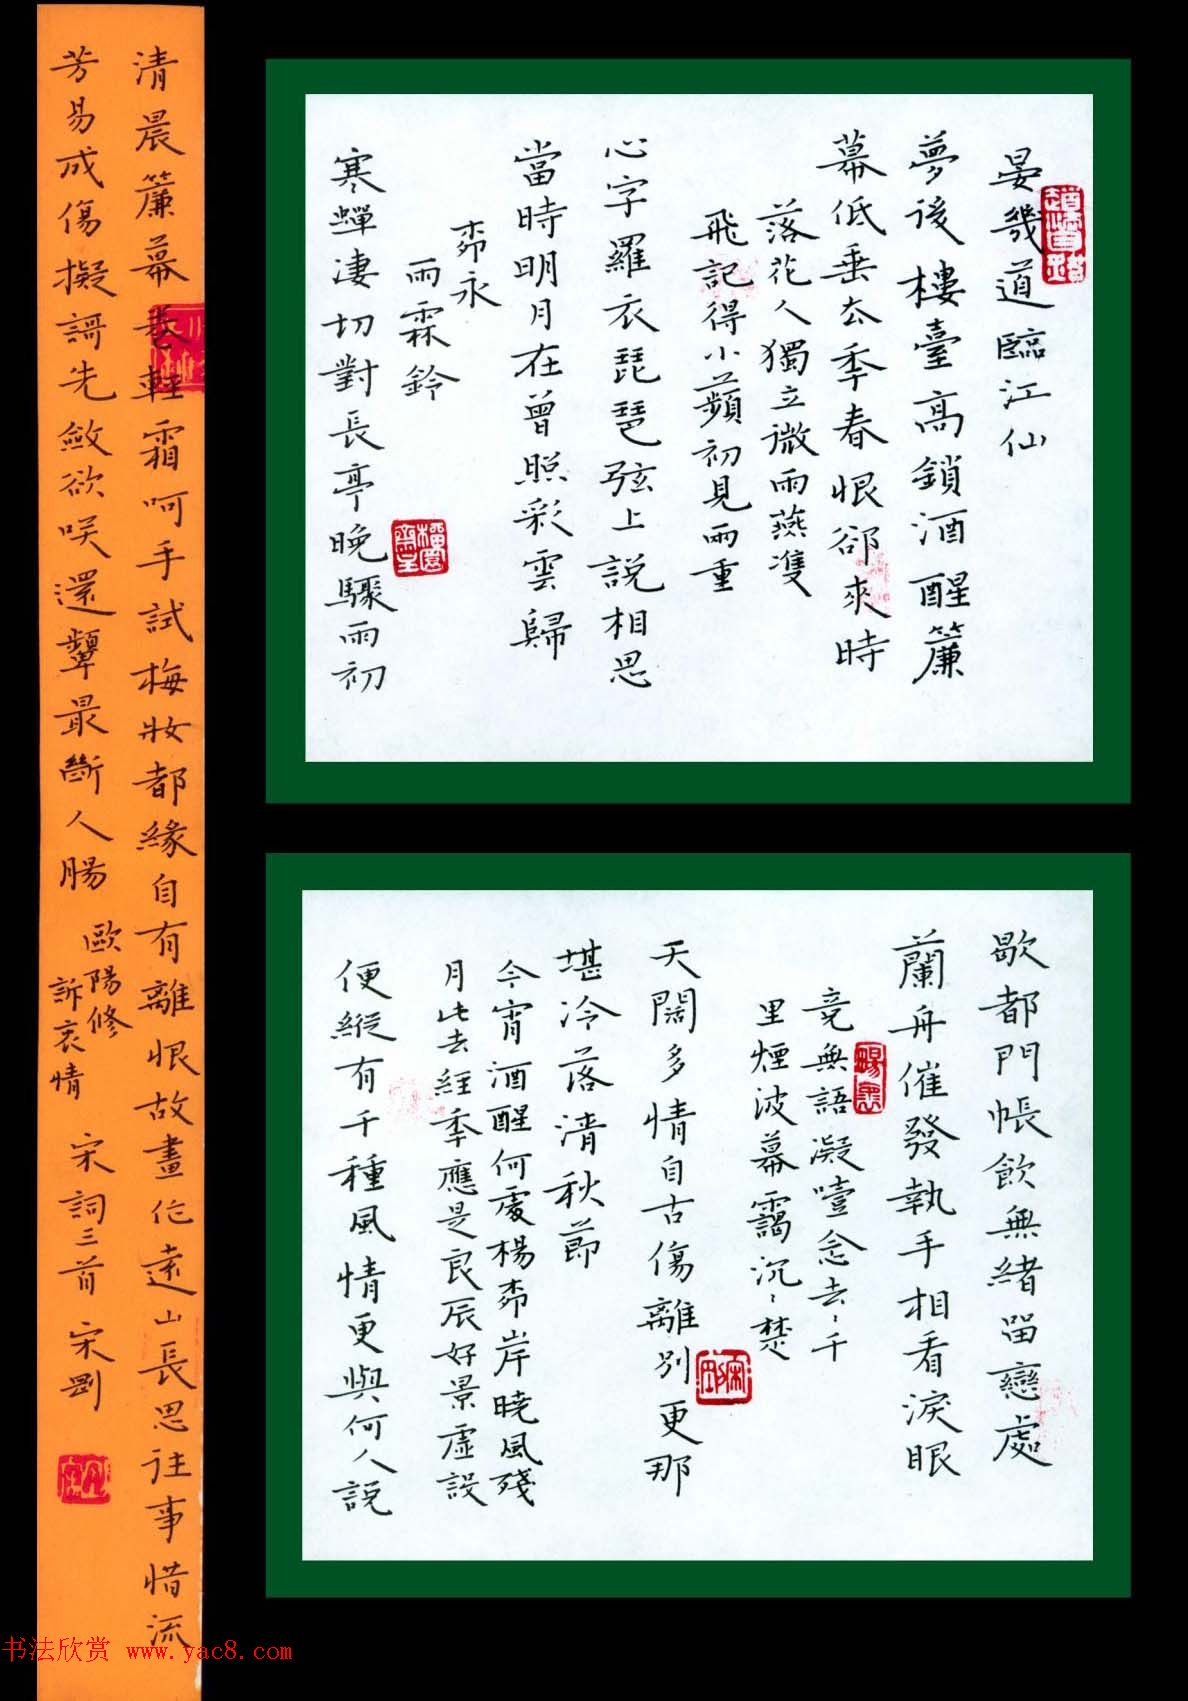 晏幾道臨江仙
夢後樓臺高鎖酒醒簾
幕低垂去年春恨郤來時
落花人獨立微雨燕雙
飛記得小蘋初見兩重
心字羅衣琵琶弦上說相思
當時明月在曾照彩雲歸
柳永
雨霖鈴
寒蟬凄切對長亭晚驟雨初
歇都門帳飲無緒留戀處
蘭舟催發執手相看淚眼
竟無語凝噎念去、千
里煙波暮靄沉、楚
天闊多情自古傷離別更那
堪冷落清秋節
今宵酒醒何處楊柳岸曉風殘
月此去經年應是良辰好景虛設
便縱有千種風情更與何人說
清晨簾幕卷輕霜呵手試梅妝都緣自有離恨故畫作遠山長思往事惜流
芳易成傷擬歌先斂欲咲還顰最斷人腸
歐陽修
訴衷情
宋詞三首 宋剛
书法欣赏 www.yac8.com